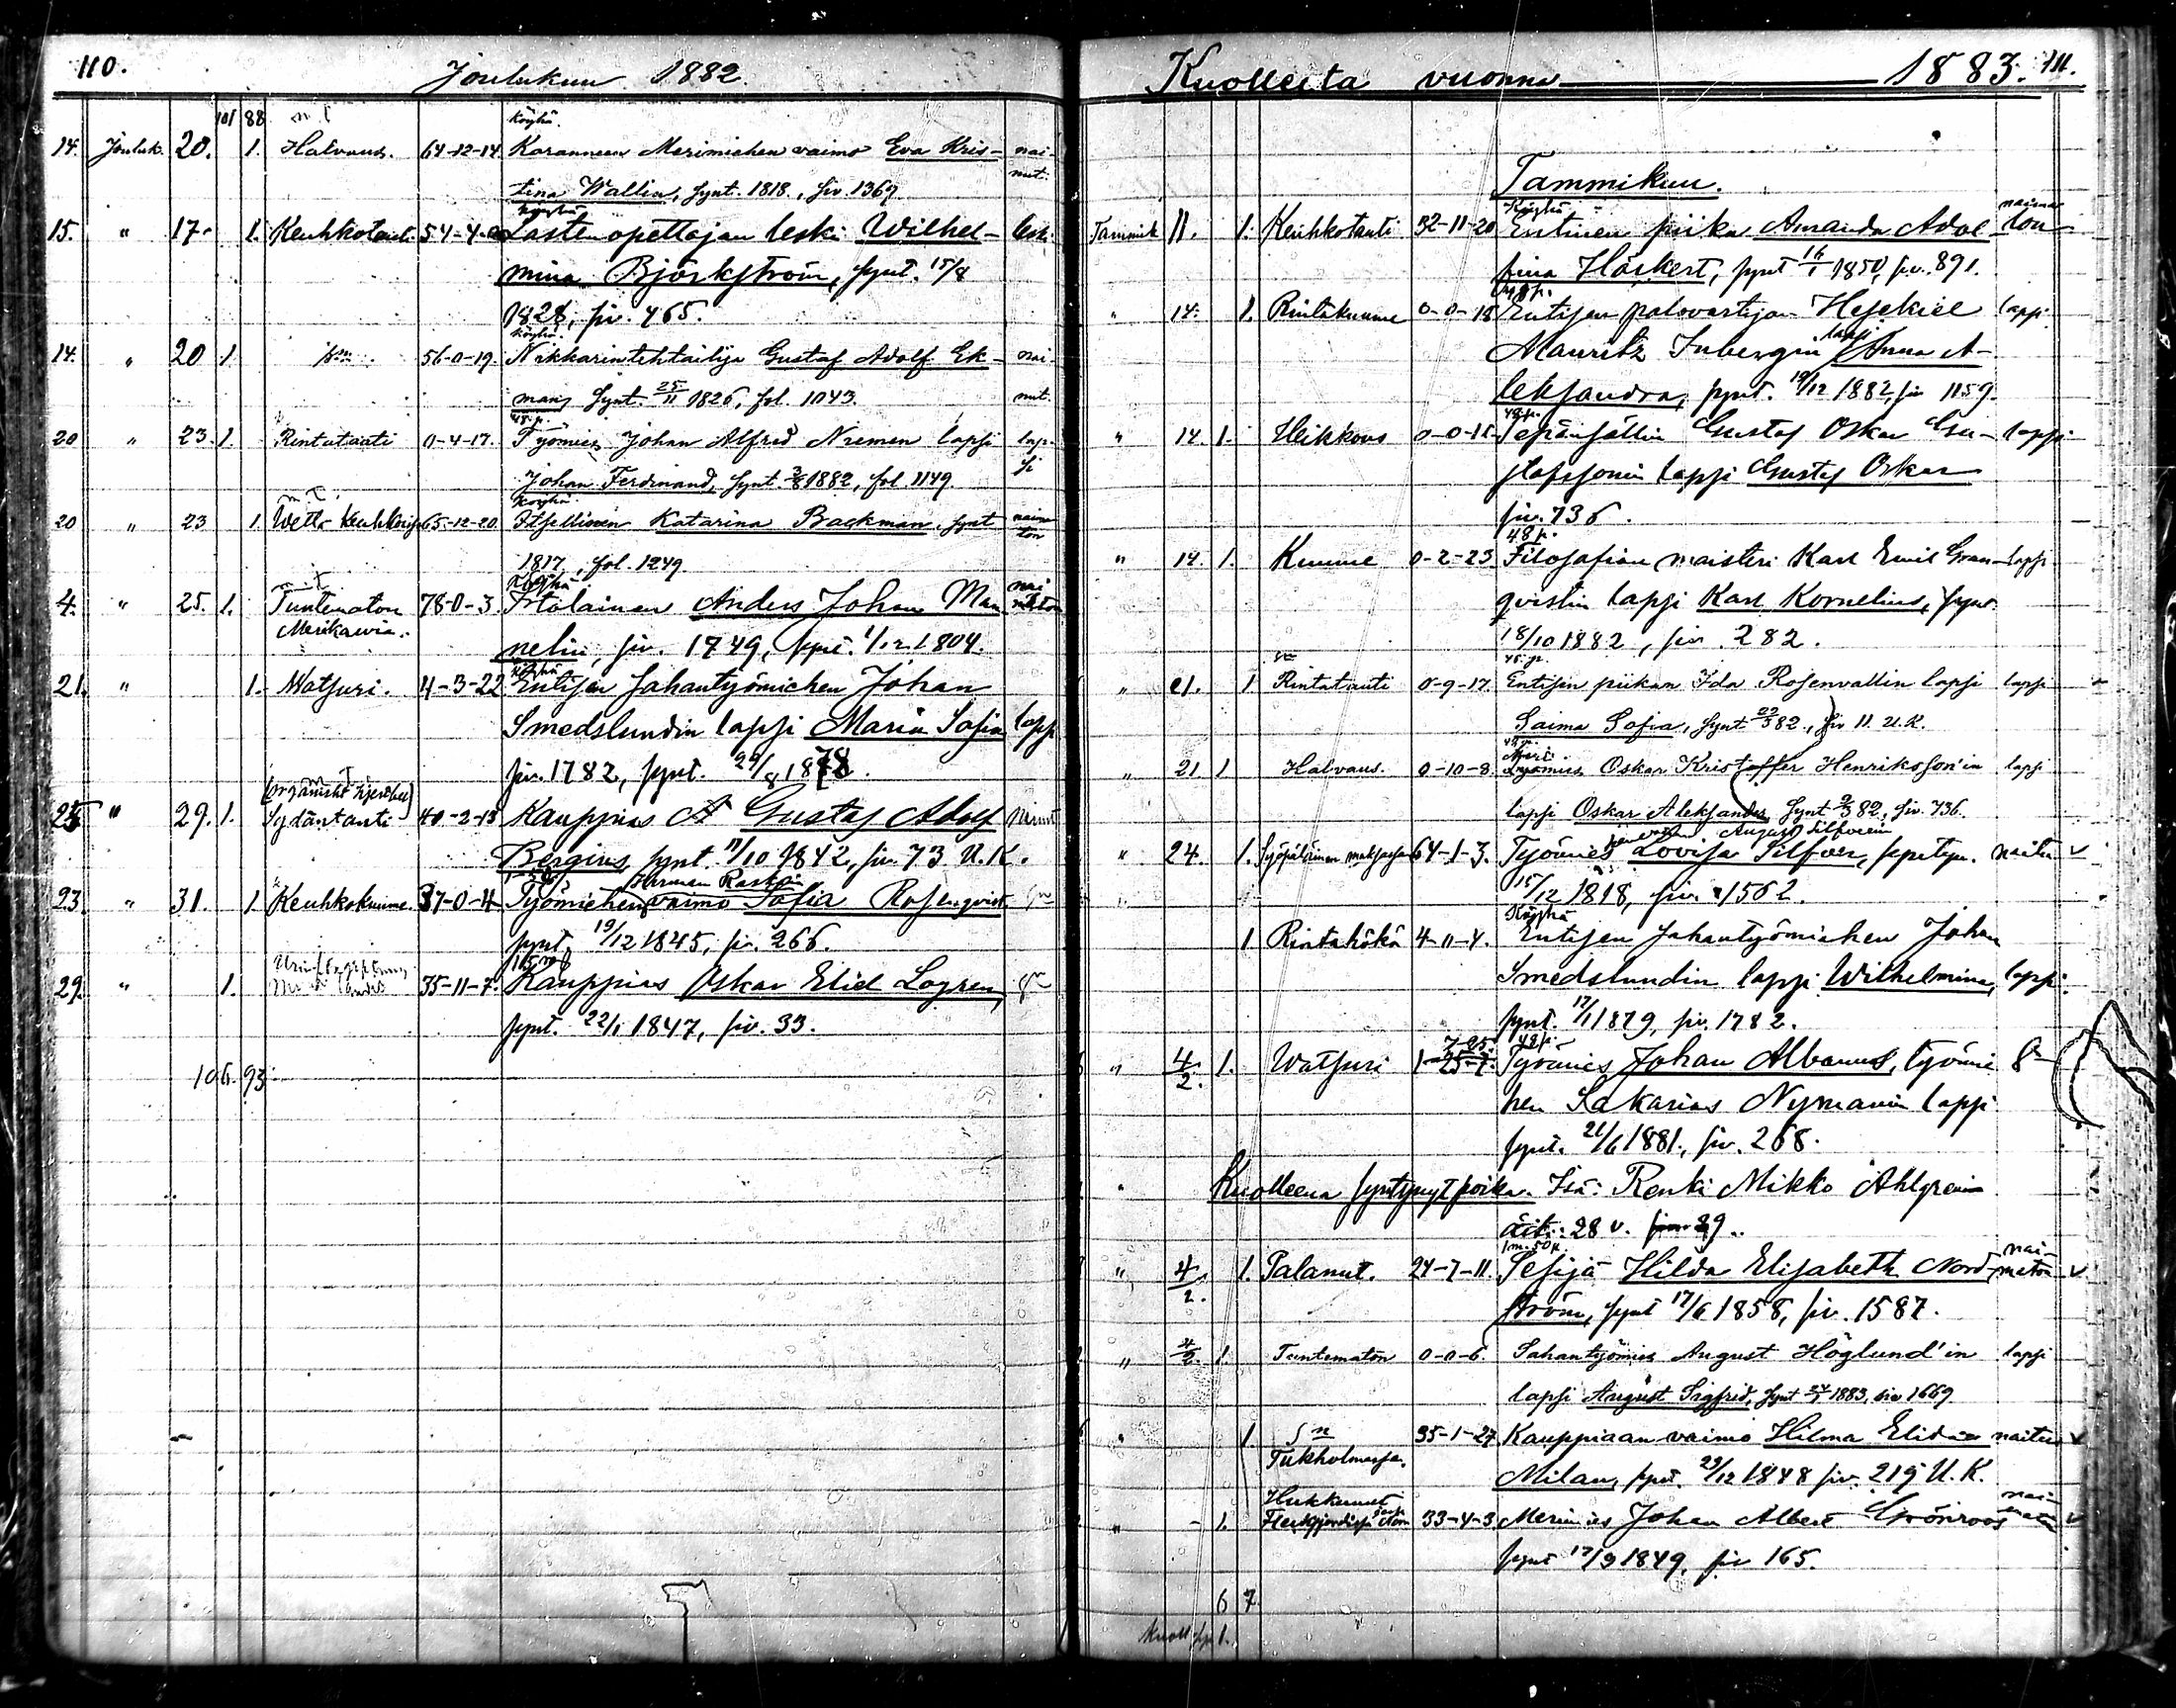 110.
Joulukuu 1882.
101 88 m.t.
köyhä.
14. Jouluk. 20. 1. Halvaus. 64-12-14 Karanneen Merimiehen vaimo Eva Kris- nai-
tina Wallin, synt. 1818, siv. 1369 nut.
köyhä
15. " 17. 1. Keuhkotauti 54-4- Lastenopettajan leski Wilhel- leski
mina Björkström, synt. 15/8
1828, siv. 465.
köyhä.
14. " 20 1. 56-0-19. Nikkarintehtailija Gustaf Adolf Ek- nai-
man, synt. 25/11 1826, fol. 1043. nut.
48 p.
20 " 23. 1. Rintatauti 0-4-17. Työmies Johan Alfred Niemen lapsi lap-
Johan Ferdinand, synt. 3/8 1882, fol. 1149. si
m.t. köyhä.
20 " 23 1. Wetto Keuhkoissa 65-12-20. Itsellinen Katarina Backman, synt naima
1817, fol. 1249. ton
m.t. Köyhä nai
4. " 25. 1. Tuntematon 78-0-3. Irtolainen Anders Johan Man- maton
Merikarvia.
nelin, siv. 1749, synt. 1/12 1804.
köyhä
21. " 1. Matsuri. 4-3-22 Entisen Sahantyömiehen Johan
Smedslundin lapsi Maria Sofia laps
siv. 1782, synt. 29/8 1878.
m.t.
25 " 29. 1. Sydäntauti 40-2-13 Kauppias A Gustaf Adolf nainut
Bergius, synt. 11/10 1842, siv. 73 U.K.
Herman Raskin
23. " 31. 1. Keuhkokuume. 37-0-4 Työmiehen vaimo Sofia Rosenqvist
synt. 19/12 1845, siv. 266.
29. " 1. 35-11-7. Kauppias Oskar Elied Logren,
synt. 22/1 1847, siv. 33.
106. 93.
Kuolleita vuonna 1883. 111.
Tammikuu.
Köyhä naima
Tammik 11. 1. Keuhkotauti 32-11-20 Entinen piika Amanda Adol- ton
fina Höckert, synt 16/1 1850, siv. 891.
48 p.
" 14. 1. Rintakuume 0-0-18 Entisen palovartijan Hesekiel lapsi
Mauritz Inbergin lapsi Anna A-
leksandra, synt. 19/12 1882, siv 1159.
48 p.
" 14 1. Heikkous 0-0-15 Sepänsällin Gustaf Oskar Gu- lapsi
stafssonin lapsi Gustaf Oskar
siv. 736.
48 p.
" 14. 1. Kuume 0-2-23 Filosofian maisteri Karl Emil Gran- lapsi
qvistin lapsi Karl Kornelius, synt.
18/10 1882, siv. 282.
" 21. 1 Rintatauti 0-9-17. Entisen piikan Ida Rosenvallin lapsi lapsi
Saima Sofia, synt 22/3 82, siv 11. U.K.
Meri
" 21 1 Halvaus. 0-10-8. Työmies Oskar Kristoffer Henriksson'in lapsi
lapsi Oskar Aleksander synt 2/3 82, siv. 736.
August Silfverin
" 24. 1. Syöpäläinen maksassa 64-1-3. Työmies Lovisa Silfver, naitu
15/12 1818, siv. 1562.
Köyhä
1 Rintahökä 4-0-4. Entisen Sahantyömiehen Johan
Smedslundin lapsi Wilhelmina, lapsi.
synt. 17/1 1879, siv. 1782.
7-25. 48 p.
" 4/2. 1. Watsuri 1-25-7. Työmies Johan Albanus, työmie
hen Sakarias Nymanin lapsi
synt. 21/6 1881., siv. 268.
" Kuolleena syntynyt poika. Isä: Renki Mikko Ahlgren
äiti: 28 v. siv. 39..
1 m. 50 p. nai-
" 4/2. 1. Palanut. 24-7-11. Sefijä Hilda Elisabeth Nord- maton
ström, synt 17/6 1858, siv. 1587.
" 4/2. 1. Tuntematon 0-0-6. Sahantyömies August Höglund'in lapsi
lapsi August Sigfrid, synt 24/1 1883, siv 1669
" 1. 35-1-27 Kauppiaan vaimo Hilma Elida naitu
Tukholmassa.
Milan, synt. 23/12 1848 siv. 219 U.K.
Hukkunut nai-
" - 1. 33-4-3 Merimies Johan Albert Grönroos maton
synt 17/9 1849, siv 165.
6 7
Kuoll. s. 1.